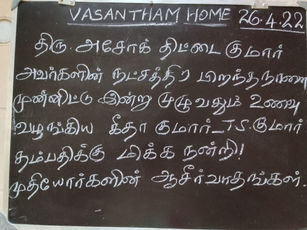 VASANTHAM HOME 26.4.22
திரு. அசோக் திட்டை குமார்
அவர்களின் நட்சத்திர பிறந்தநாளை
முன்னிட்டு இன்று முழுவதும் உணவு
வழங்கிய கீதா குமார் - T.S. குமார்
தம்பதிக்கு மிக்க நன்றி!
முதியோர்களின் ஆசீர்வாதங்கள்